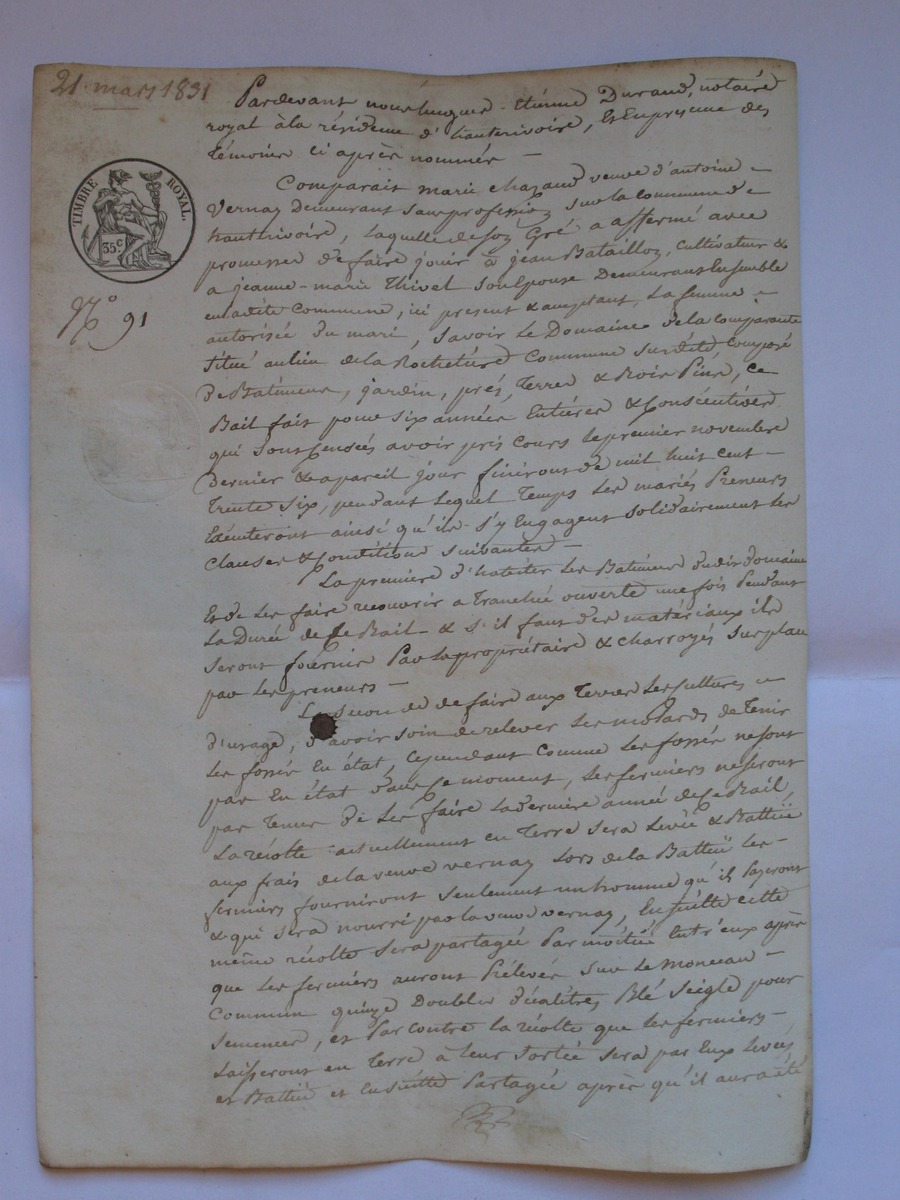 21 mars 1831
TIMBRE ROYAL.
35.c
N.o 91
Pardevant nous Etienne Durand, notaire
royal à la résidence d'hauterivoire, Et En presence des
témoins ci après nommés —
Comparait marie chazaud veuve d'antoine –
Vernay Demeurant sans profession sur la commune de
hautrivoire, Laquelle de son Gré a affermé avec
promesse de faire jouir à jean Bataillon, Cultivateur &
a jeanne-marie Thivel son Epouse Demeurans Ensemble
en ladite Commune, ici present & acceptant, la femme –
autorisée du mari, Savoir Le Domaine de la Comparante
situé au lieu de la Rochetüre Commune susdite Composé
De Batimens, jardin, prés, Terres & Bois Pins, Ce
Bail fait pour Six années Entières & Consécutives
qui Sont Censées avoir pris Cours le premier novembre
Dernier & a pareil jour finiront de mil huit cent –
Trente six, pendant Lequel Temps Les mariés Preneurs
Exécuteront ainsi qu'ils s'y Engagent solidairement Les
Clauses & Conditions suivantes –
La premiere d'habiter Les Batimens dudit Domaine
Et de Les faire recouvrir a Tranchée ouverte une fois Pendant
La Durée de Ce Bail & S'il faut des matériaux ils
Seront fournis Par La propriétaire & charroyés Sur place
par Les preneurs –
La seconde de faire aux Terres Les Cultures –
d'usage, d'avoir soin de relever Les de Tenir
Les fossés En état, Cependant Comme Les fossés ne sont
pas En état dans Ce moment, Les fermiers ne seront
pas Tenus de Les faire La dernière année de Ce Bail,
La récolte actuellement en Terre sera Levée & Battüe
aux frais de la veuve vernay Lors de la Battüe Les –
fermiers fourniront Seulement un homme qu'ils Payeront
& qui sera nourri par la veuve vernay, Ensuitte cette
même récolte sera partagée Par moitié Entr'eux après
que Les fermiers auront Prélevés Sur Le Monceau –
Commun quinze Doubles décalitres Blé Seigle pour
Semences, et Par Contre la récolte que Les fermiers –
Laisseront en Terre à Leur Sortie Sera par Eux Levée
et Battüe et Ensuitte Partagée après qu'il aura été